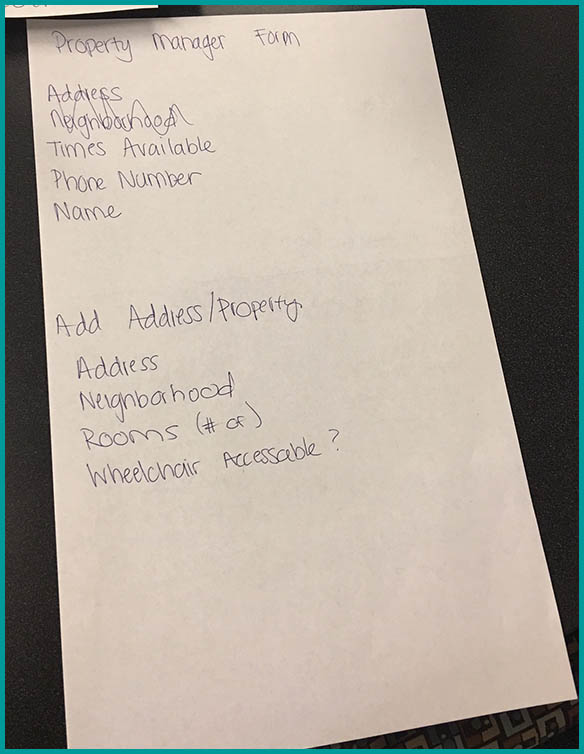 Property Manager Form
Address
Neighborhood
Times Available
Phone Number
Name
Add Address/Property
Address
Neighborhood
Rooms (# of)
Wheelchair Accessable?